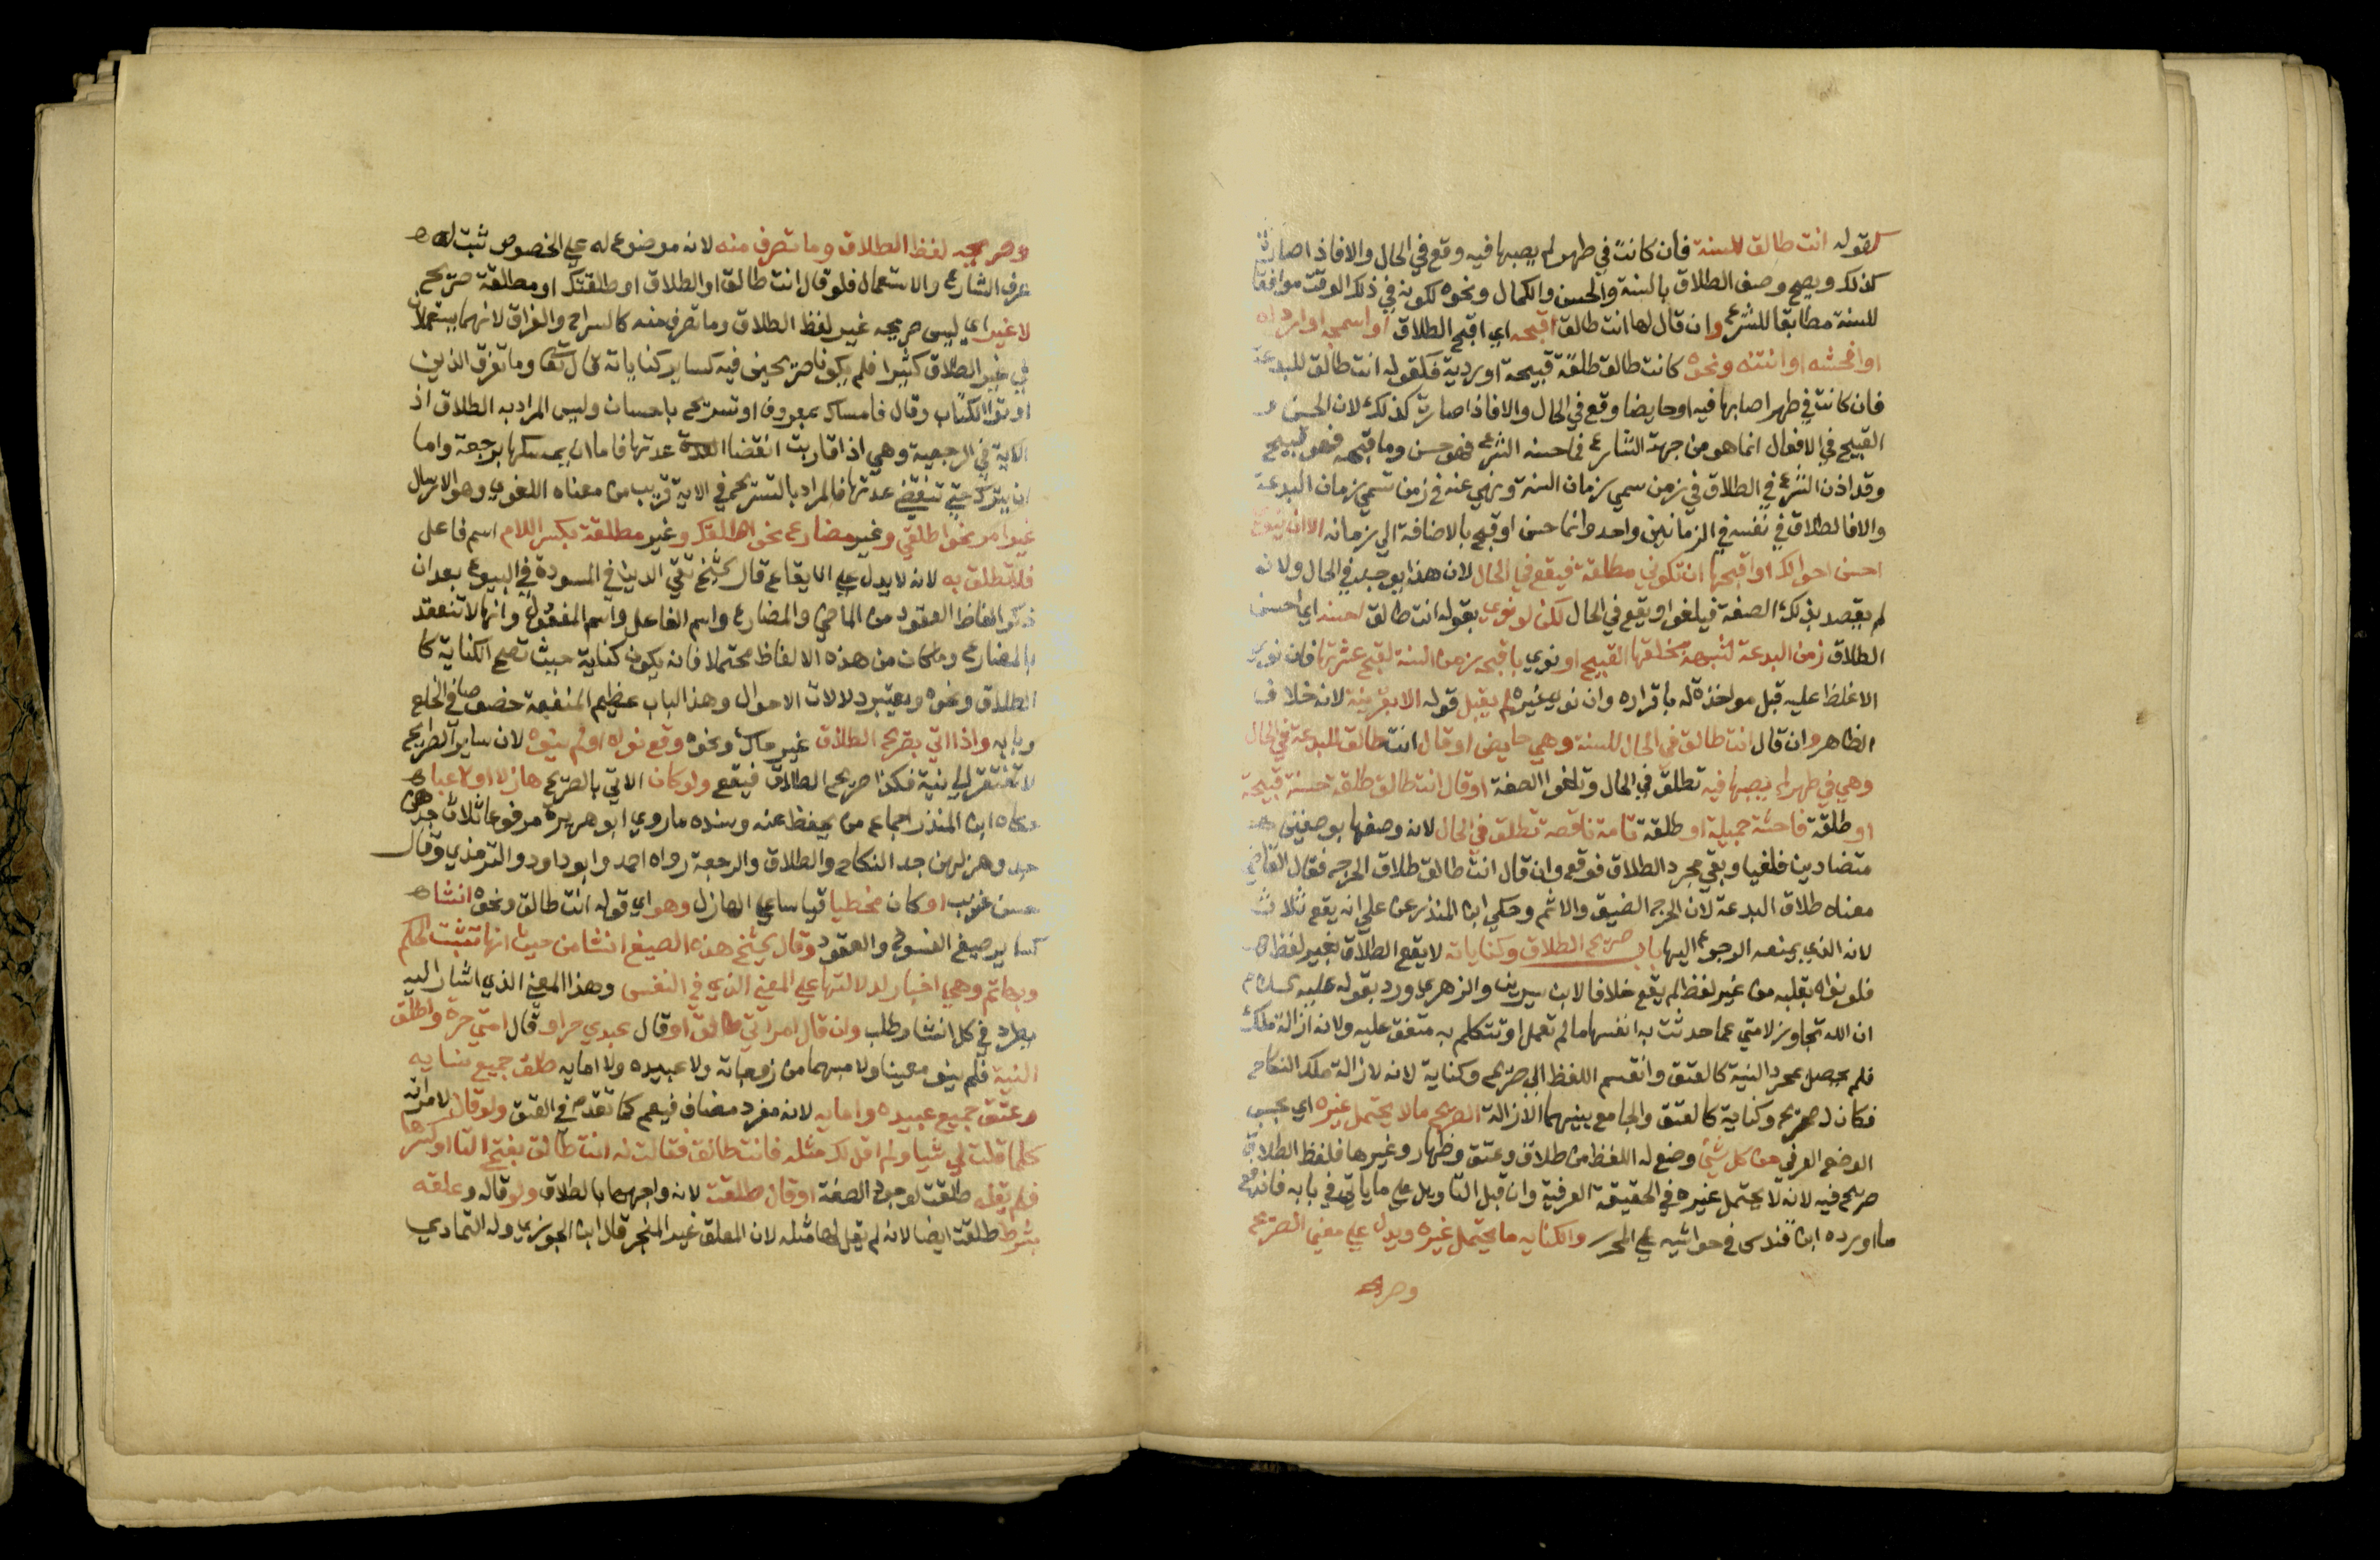 كقوله انت طالق للسنة فان كانت في طهر لم يصبها فيه وقع في الحال والا فاذا صارت
كذلك ويصح وصف الطلاق بالسنة والحسن والكمال ونحوه لكونه في ذلك الوقت موافقا
للسنة مطابقا للشرع وان قال لها انت طالق اقبحه اي اقبح الطلاق او اسمجه او ارداه
او افحشه او انتنه ونحوه كانت طالق طلقة قبيحة او ردية فكقوله انت طالق للبدعة
فان كانت في طهر اصابها فيه او حايضا وقع في الحال والا فاذا صارت كذلك لان الحسن و
القبيح في الافعال انما هو من جهة الشارع فما حسنه الشرع فهو حسن وما قبحه فهو قبيح
وقد اذن الشرع في الطلاق في زمن سمي زمان السنة ونهي عنه في زمن سمي زمان البدعة
والا فالطلاق في نفسه في الزمانين واحد وانما حسن او قبح بالاضافة الي زمانه الا ان ينوي
احسن احوالك او اقبحها ان تكوني مطلقة فيقع في الحال لان هذا يوجد في الحال ولانه
لم يقصد بذلك الصفة فيلغو ويقع في الحال لكن لو نوي بقوله انت طالق احسنه اي احسن
الطلاق زمن البدعة لشبهه بخلقها القبيح او نوي باقبحه زمن السنة لقبح عشرتها فان نوي
الاغلظ عليه قبل مواخذة له باقراره وان نوي غيره لم يقبل قوله الا بقرينة لانه خلاف
الظاهر وان قال انت طالق في الحال للسنة وهي حايض او قال انت طالق للبدعة في الحال
وهي في طهر لم يصبها فيه تطلق في الحال وتلغوا الصفة او قال انت طالق طلقة حسنة قبيحة
او طلقة فاحشة جميلة او طلقة تامة ناقصة تطلق في الحال لانه وصفها بوصفين
متضادين فلغيا وبقي مجرد الطلاق فوقع وان قال انت طالق طلاق الحرج فقال القاضي
معناه طلاق البدعة لان الحرج الضيق والاثم وحكي ابن المنذر عن علي انه يقع ثلاث
لانه الذي يمنعه الرجوع اليها باب صريح الطلاق وكناياته لا يقع الطلاق بغير لفظ
فلو نواه بقلبه من غير لفظ لم يقع خلافا لابن سيرين والزهري ورد بقوله عليه السلام
ان الله تجاوز لامتي عما حدثت به انفسها ما لم تعمل او تتكلم به متفق عليه ولانه ازالة ملك
فلم يحصل بمجرد النية كالعتق وانقسم اللفظ الي صريح وكناية لانه لازالة ملك النكاح
فكان له صريح وكناية كالعتق والجامع بينهما الازالة الصريح ما لا يحتمل غيره اي بحسب
الوضع العرفي من كل شيئ وضع له اللفظ من طلاق وعتق وظهار وغيرها فلفظ الطلاق
صريح فيه لانه لا يحتمل غيره في الحقيقة العرفية وان قبل التاويل علي ما ياتي في بابه فاندفع
ما اورده ابن قندس في حواشيه علي المحرر والكنايه ما يحتمل غيره ويدل علي معني الصريح
وصريحه
وصريحه لفظ الطلاق وما تصرف منه لانه موضوع له علي الخصوص ثبت له
عرف الشارع والاستعمال فلو قال انت طالق او الطلاق او طلقتك او مطلقة صريح
لا غير اي ليس صريحه غير لفظ الطلاق وما تصرف منه كالسراح والفراق لانهما يستعملان
في غير الطلاق كثيرا فلم يكونا صريحين فيه كساير كناياته قال تعا وما تفرق الذين
اوتوا الكتاب وقال فامساك بمعروف او تسريح باحسان وليس المراد به الطلاق اذ
الاية في الرجعية وهي اذا قاربت انقضا العدة عدتها فاما ان يمسكها برجعة واما
ان يترك حتي تنقضي عدتها فالمراد بالتسريح في الاية قريب من معناه اللغوي وهو الارسال
غير امر نحو اطلقي وغير مضارع نحو اطلقك وغير مطلقة بكسر اللام اسم فاعل
فلا تطلق به لانه لا يدل علي الايقاع قال الشيخ تقي الدين في المسودة في البيوع بعد ان
ذكر الفاظ العقود من الماضي والمضارع واسم الفاعل واسم المفعول وانها لا تنعقد
بالمضارع وما كان من هذه الالفاظ محتملا فانه يكون كناية حيث تصح الكناية كا
لطلاق ونحوه ويعتبر دلالات الاحوال وهذا الباب عظيم المنفعة خصوصا في الخلع
وبابه واذا اتي بصريح الطلاق غير حاك ونحوه وقع نواه او لم ينوه لان ساير الصرايح
لا تفتقر الي نية فكذا صريح الطلاق فيقع ولو كان الاتي بالصريح هازلا او لاعبا
حكاه ابن المنذر اجماع من يحفظ عنه وسنده ما روي ابو هريرة مرفوعا ثلاث جدهن
جد وهزلهن جد النكاح والطلاق والرجعة رواه احمد وابو داود والترمذي وقال
حسن غريب او كان مخطيا قياسا علي الهازل وهو اي قوله انت طالق ونحوه انشاء
كساير صيغ الفسوخ والعقود وقال الشيخ هذه الصيغ انشا من حيث انها تثبت الحكم
وبها تم وهي اخبار لدلالتها علي المعني الذي في النفس وهذا المعني الذي اشار اليه
يطرد في كل انشا وطلب وان قال امراتي طالق او قال عبدي حر او قال امتي حرة واطلق
النية فلم ينو معينا ولا مبهما من زوجاته ولا عبيده ولا امايه طلق جميع نسايه
وعتق جميع عبيده وامايه لانه مفرد مضاف فيعم كما تقدم في العتق ولو قال لامراته
كلما قلت لي شيا ولم اقل لك مثله فانت طالق فقالت له انت طالق بفتح التا او كسرها
فلم يقله طلقت لوجود الصفة او قال طلقت لانه واجهها بالطلاق ولو قاله وعلقه
بشرط طلقت ايضا لانه لم يقل لها مثله لان المعلق غير المنجز قال ابن الجوزي وله التمادي